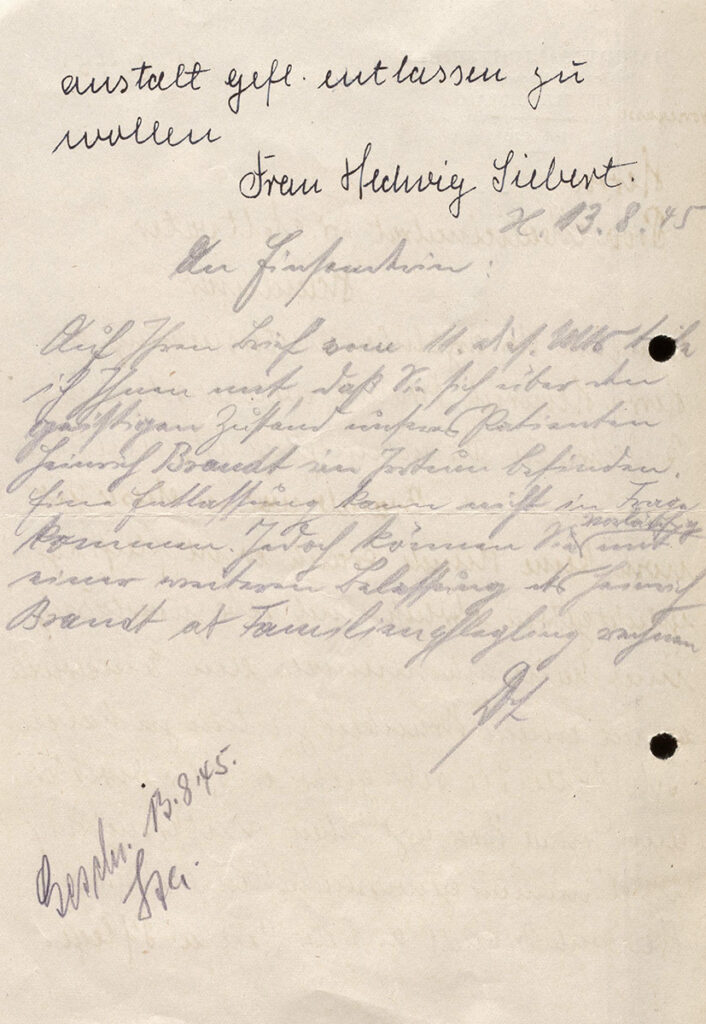 anstalt gefl. entlassen zu
wollen
Frau Hedwig Siebert.
13.8.45
An Einsenderin:
Auf Ihren Brief vom 11. ds. Mts. teile
ich Ihnen mit, daß Sie sich über den
geistigen Zustand unseres Patienten
Heinrich Brandt im Irrtum befinden.
Eine Entlassung kann nicht in Frage
vorläufig
kommen. Jedoch können Sie mit
einer weiteren Belassung des Heinrich
Brandt als Familienpflegling rechnen
Geschr. 13.8.45.